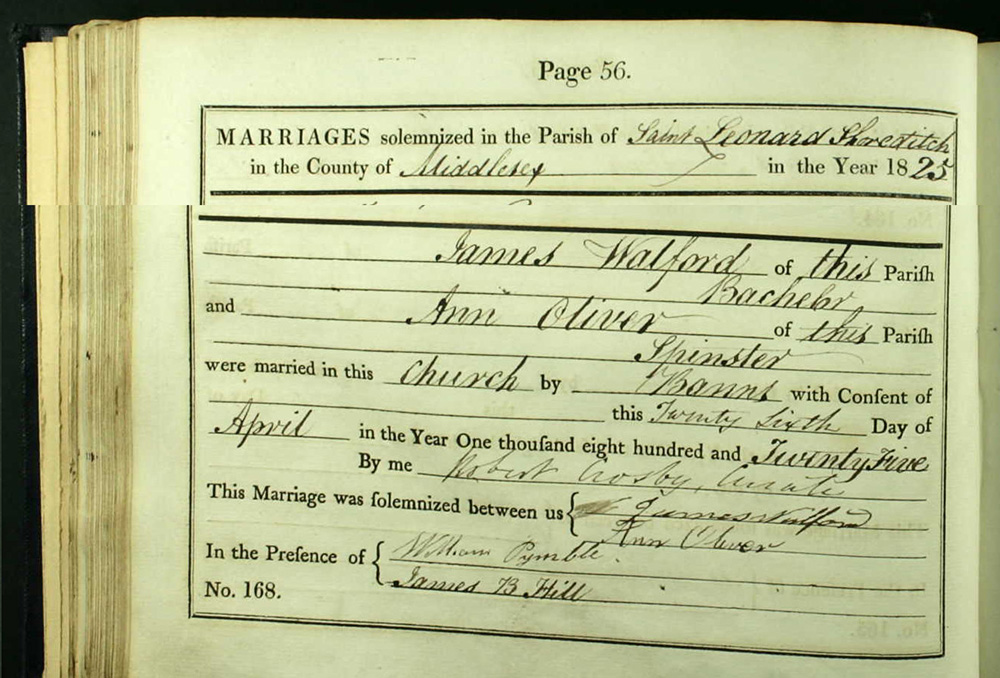 Page 56.
MARRIAGES solemnized in the Parish of Saint Leonard Shoreditch
in the County of Middlesex in the Year 1825
James Walford of this Pariſh
Bachelor
and Ann Oliver of this Pariſh
Spinster
were married in this Church by Banns with Conſent of
this Twenty Sixth Day of
April in the Year One thouſand eight hundred and Twenty Five
By me Robert Crosby, Curate
This Marriage was ſolemnized between us { James Walford
Ann Oliver
In the Preſence of { William Pymble.
James B Hill
No. 168.